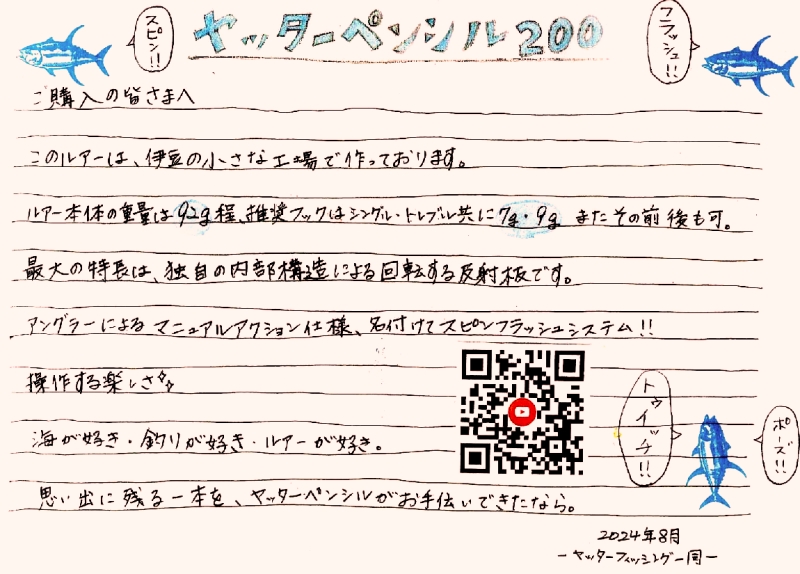 スピン!!
ヤッターペンシル200
フラッシュ!!
ご購入の皆さまへ
このルアーは、伊豆の小さな工場で作っております。
ルアー本体の重量は92g程、推奨フックはシングル・トレブル共に7g・9g またその前後も可。
最大の特長は、独自の内部構造による回転する反射板です。
アングラーによるマニュアルアクション仕様、名付けてスピンフラッシュシステム!!
操作する楽しさ
海が好き・釣りが好き・ルアーが好き。
トゥイッチ!!
ポーズ!!
思い出に残る一本を、ヤッターペンシルがお手伝いできたなら。
2024年8月
ーヤッターフィッシング一同ー